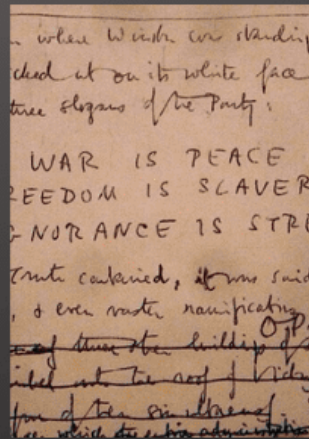 where Winston was standing
on its white face
three slogans of the Party:
WAR IS PEACE
REEDOM IS SLAVER
NORANCE IS STRE
Truth contained, it was said
, & even vaster ramifications
these other buildings
into the roof of
of them simultaneously
which the entire administration